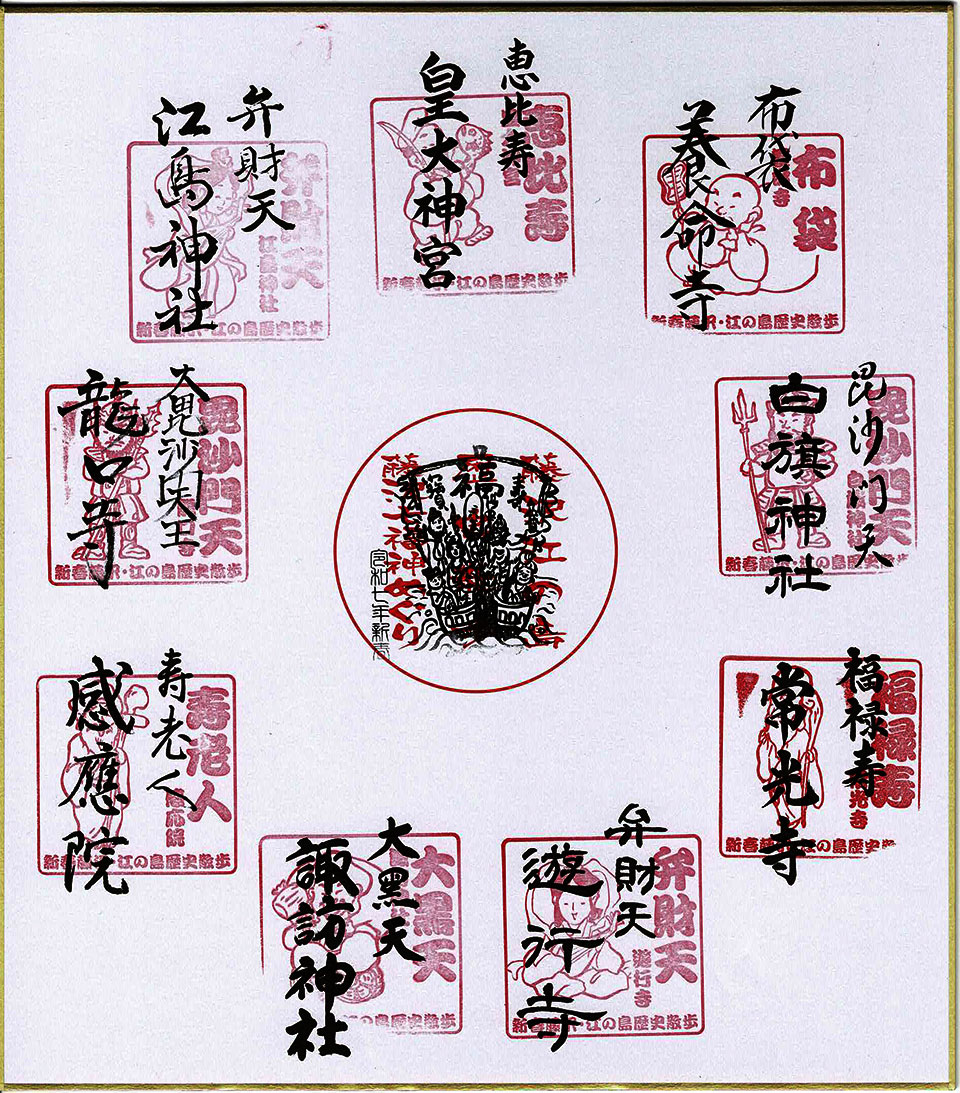 恵比寿
皇大神宮
恵比寿
新春藤沢・江の島歴史散歩
布袋
養命寺
布袋
新春藤沢・江の島歴史散歩
毘沙門天
白旗神社
毘沙門天
新春藤沢・江の島歴史散歩
福禄寿
常光寺
福禄寿
新春藤沢・江の島歴史散歩
弁財天
遊行寺
弁財天
遊行寺
新春藤沢・江の島歴史散歩
大黒天
諏訪神社
大黒天
新春藤沢・江の島歴史散歩
寿老人
感應院
寿老人
感応院
新春藤沢・江の島歴史散歩
大毘沙門天王
龍口寺
毘沙門天
新春藤沢・江の島歴史散歩
弁財天
江島神社
弁財天
江島神社
新春藤沢・江の島歴史散歩
福
藤沢七福神めぐり
令和七年新春